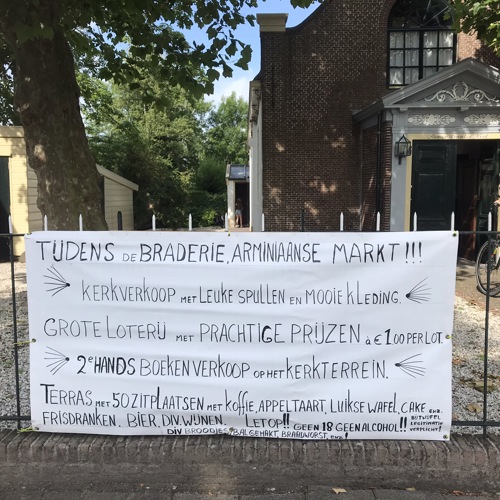 TIJDENS DE BRADERIE, ARMINIAANSE MARKT!!!
KERKVERKOOP MET LEUKE SPULLEN EN MOOIE KLEDING.
GROTE LOTERIJ MET PRACHTIGE PRIJZEN à €1,00 PER LOT.
2e HANDS BOEKEN VERKOOP OP HET KERKTERREIN.
TERRAS MET 50 ZITPLAATSEN MET KOFFIE, APPELTAART, LUIKSE WAFEL, CAKE ENZ.
FRISDRANKEN, BIER, DIV. WIJNEN. LET OP!! GEEN 18 GEEN ALCOHOL!! BIJ TWIJFEL LEGITIMATIE VERPLICHT!
DIV BROODJES, BAL GEHAKT, BRAADWORST, ENZ!